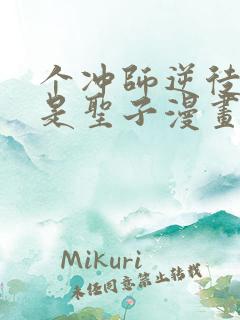 个冲師逆徒
是聖子漫畫
Mikuri
未经同意禁止转载